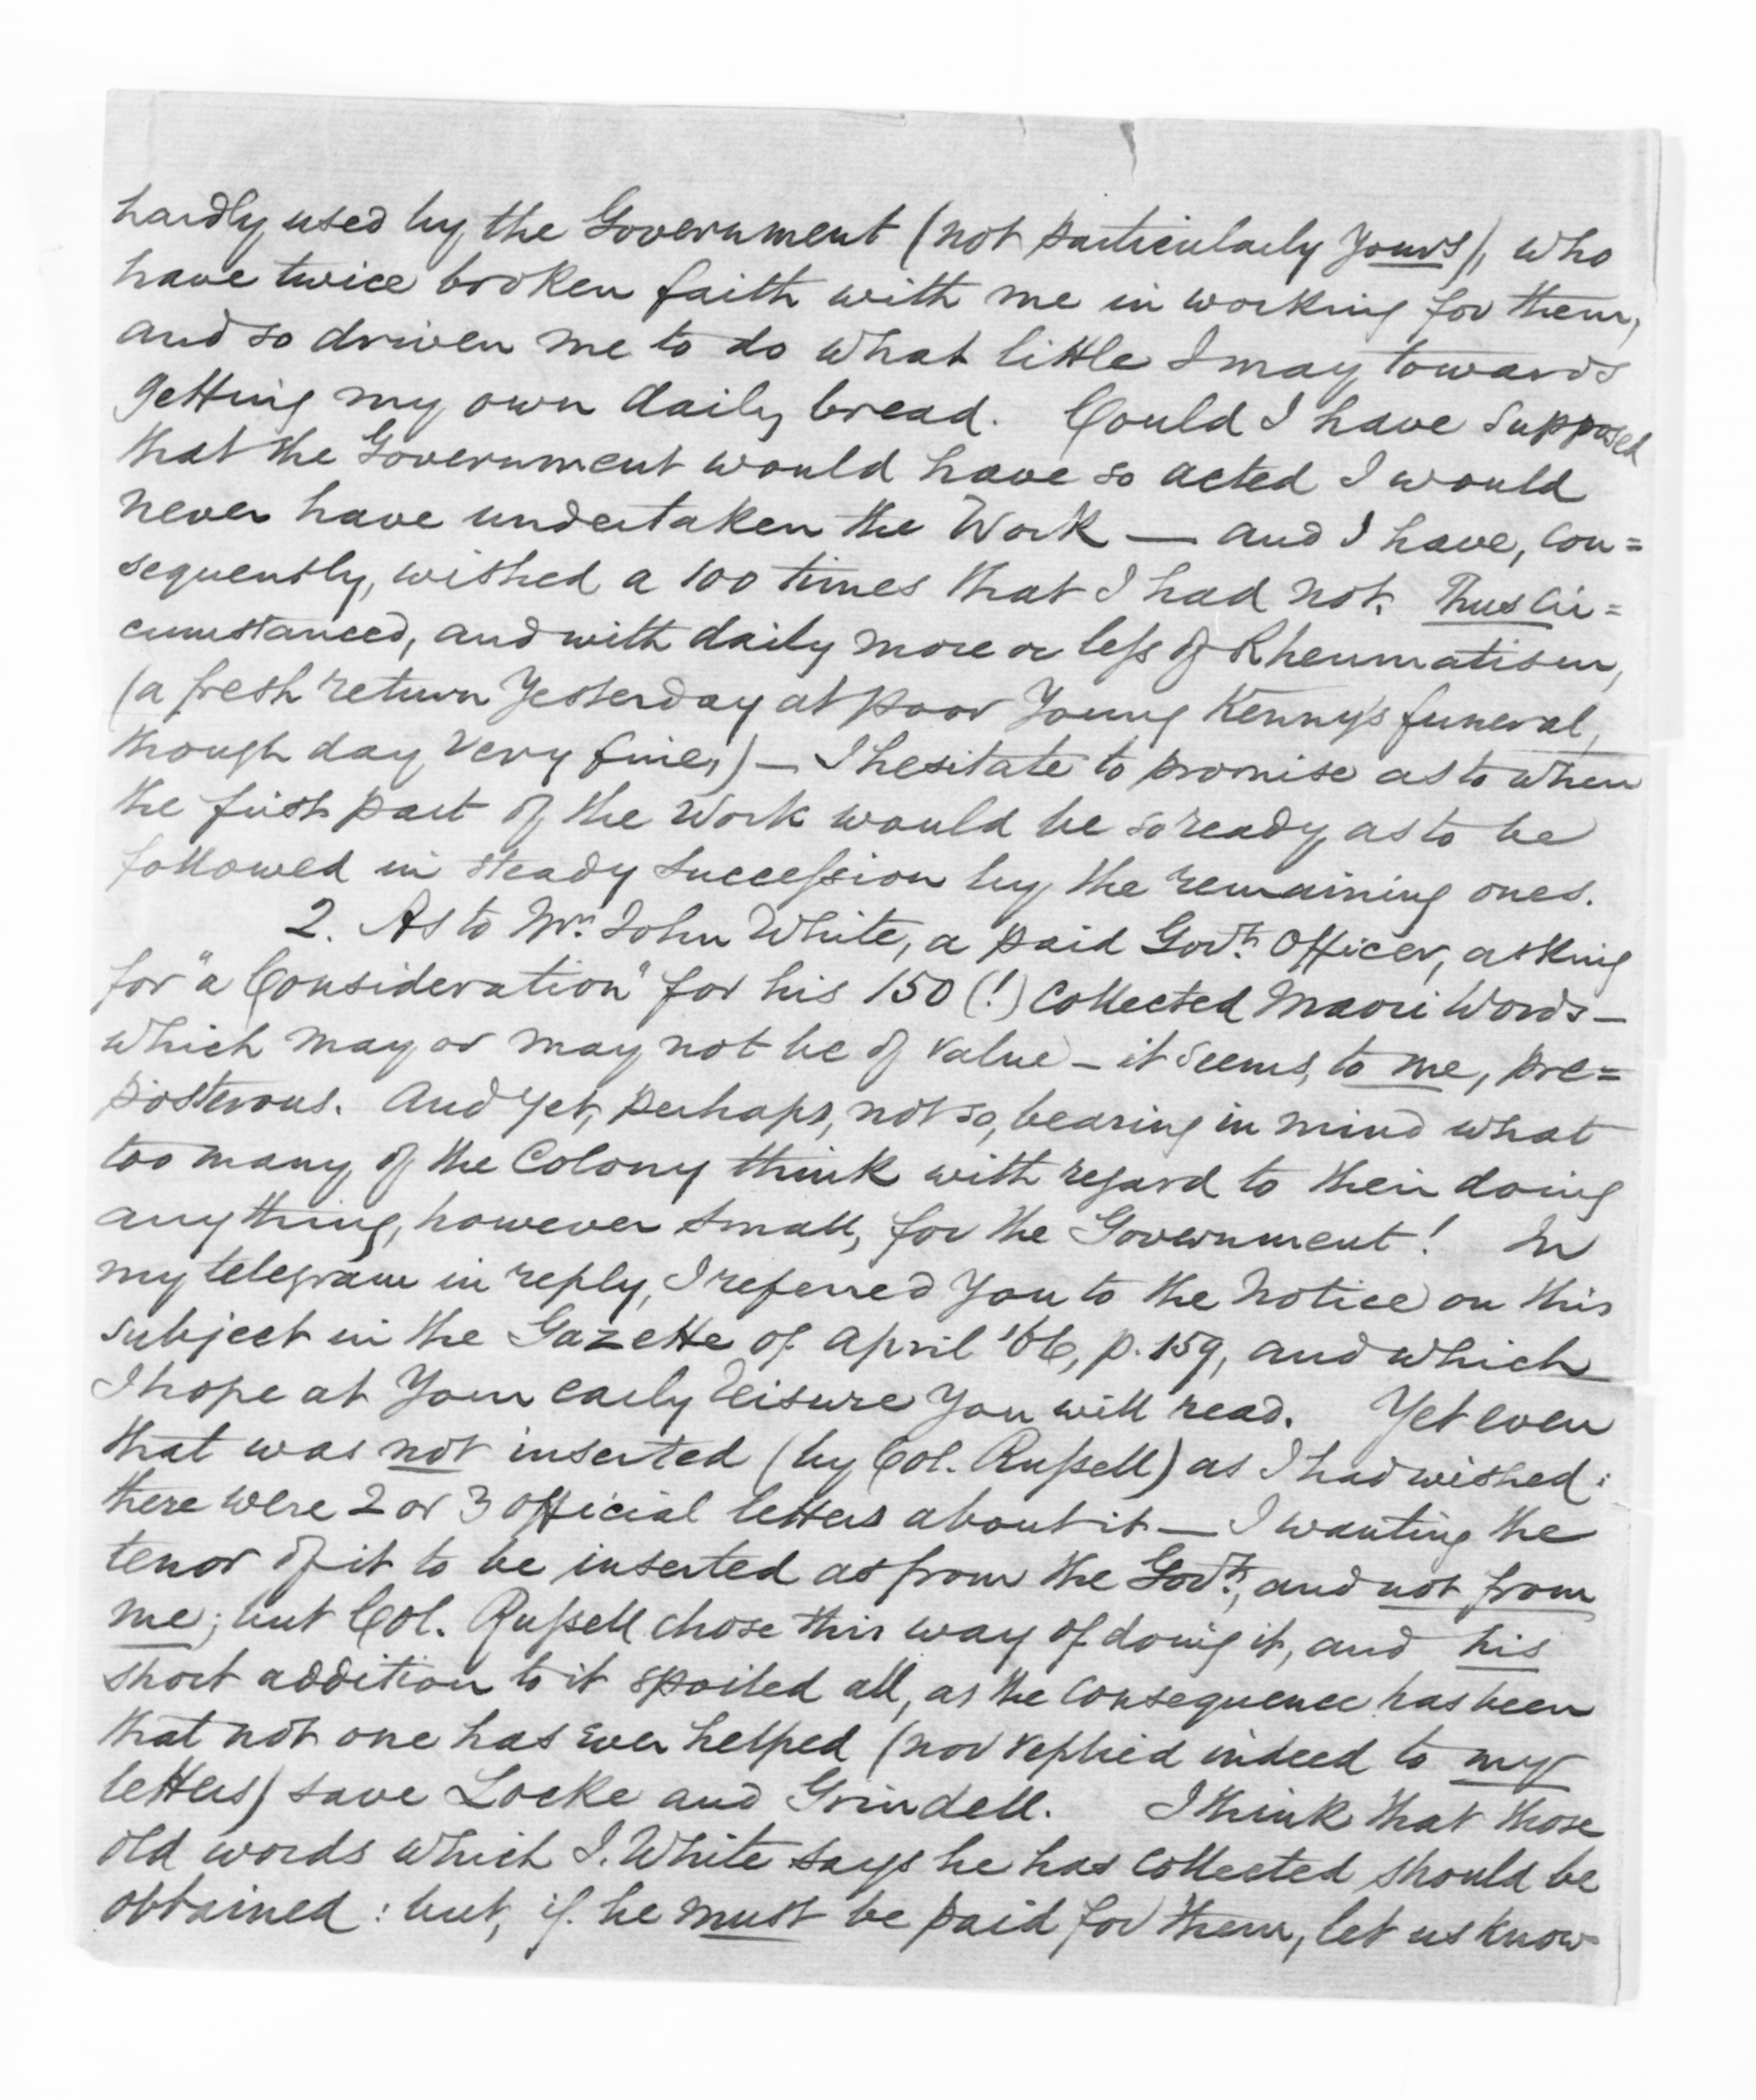 hardly used by the Government (not particularly yours), who
have twice broken faith with me in working for them,
and so driven me to do what little I may towards
getting my own daily bread. Could I have supposed
that the Government would have so acted I would
never have undertaken the Work — and I have, con=
sequently, wished a 100 times that I had not. Thus cir=
cumstanced, and with daily more or less of Rheumatism,
(a fresh return yesterday at poor Young Kenny's funeral,
though day very fine,) — I hesitate to promise as to when
the first part of the Work would be so ready as to be
followed in steady succession by the remaining ones.
2. As to Mr. John White, a paid Govt. Officer, asking
for "a Consideration" for his 150 (!) collected Maori Words —
which may or may not be of value — it seems, to me, pre=
posterous. And yet, perhaps, not so, bearing in mind what
too many of the Colony think with regard to their doing
anything, however small, for the Government! In
my telegram in reply, I referred you to the Notice on this
subject in the Gazette of April '66, p. 159, and which
I hope at your early leisure you will read. Yet even
that was not inserted (by Col. Russell) as I had wished:
there were 2 or 3 official letters about it — I wanting the
tenor of it to be inserted as from the Govt., and not from
me; but Col. Russell chose this way of doing it, and his
short addition to it spoiled all, as the consequence has been
that not one has ever helped (nor replied indeed to my
letters) save Locke and Grindell. I think that those
old words which J. White says he has collected should be
obtained: but, if he must be paid for them, let us know